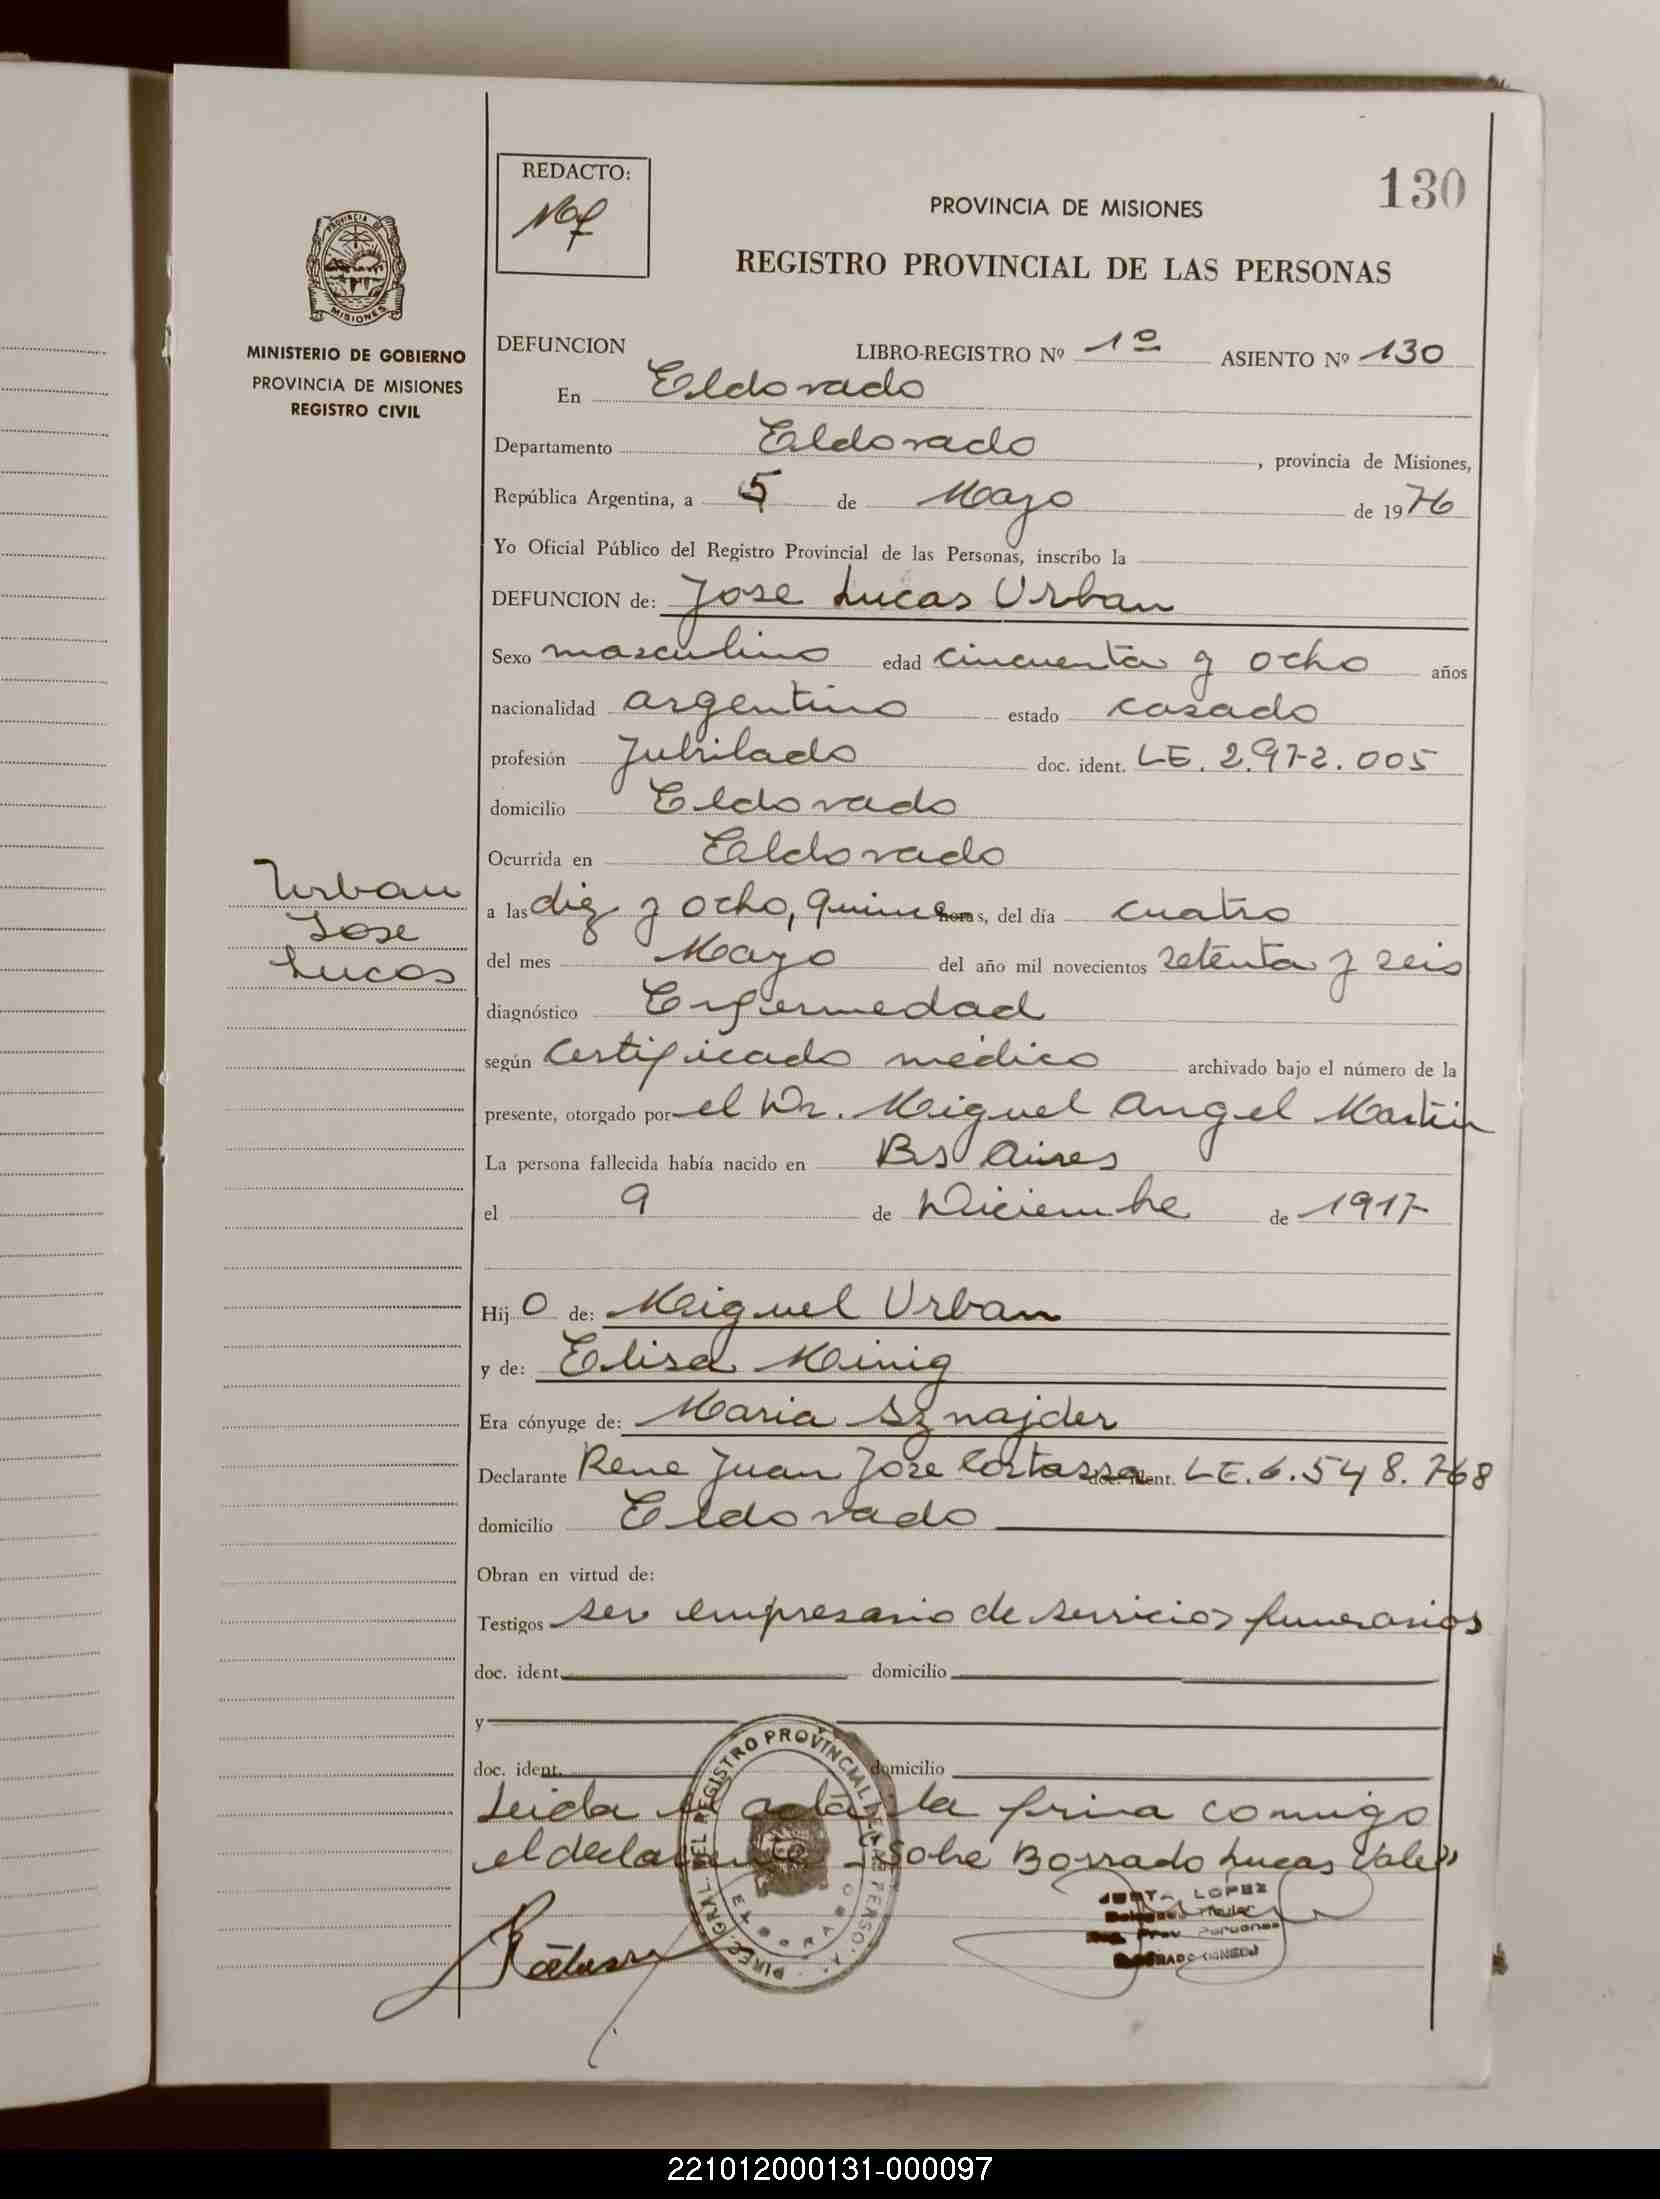 REDACTO:
130
PROVINCIA DE MISIONES
REGISTRO PROVINCIAL DE LAS PERSONAS
PROVINCIA
MISIONES
MINISTERIO DE GOBIERNO
PROVINCIA DE MISIONES
REGISTRO CIVIL
DEFUNCION LIBRO-REGISTRO Nº 1º ASIENTO Nº 130
En Eldorado
Departamento Eldorado, provincia de Misiones,
República Argentina, a 5 de Mayo de 1976
Yo Oficial Público del Registro Provincial de las Personas, inscribo la
DEFUNCION de: Jose Lucas Urban
Sexo masculino edad cincuenta y ocho años
nacionalidad argentino estado casado
profesión Jubilado doc. ident. LE. 2.972.005
domicilio Eldorado
Ocurrida en Eldorado
Urban
Jose
Lucas
a las diez y ocho, quince horas, del día cuatro
del mes Mayo del año mil novecientos setenta y seis
diagnóstico Enfermedad
según Certificado médico archivado bajo el número de la
presente, otorgado por el Dr. Miguel Angel Martin
La persona fallecida había nacido en Bs Aires
el 9 de Diciembre de 1917
Hij o de: Miguel Urban
y de: Elisa Minig
Era cónyuge de: Maria Sznajder
Declarante Rene Juan Jose Cortassa doc. ident. LE. 6.548.768
domicilio Eldorado
Obran en virtud de:
Testigos ser empresario de servicios funerarios
doc. ident. domicilio
y
doc. ident. domicilio
Leida el acta la firma comigo
el declarante - Sobre Borrado Lucas Vale"
DIREC. GRAL. DEL REGISTRO PROVINCIAL DE LAS PERSO
LOPEZ
Titular
Prov Personas
221012000131-000097